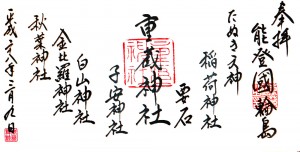 奉拝
能登國輪島
たぬき大神
稲荷神社
要石
重蔵神社
子安神社
白山神社
金比羅神社
秋葉神社
平成二八年三月九日